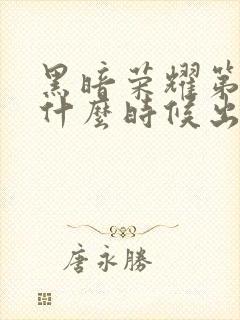 黑暗荣耀第
什麼時候出
唐永勝